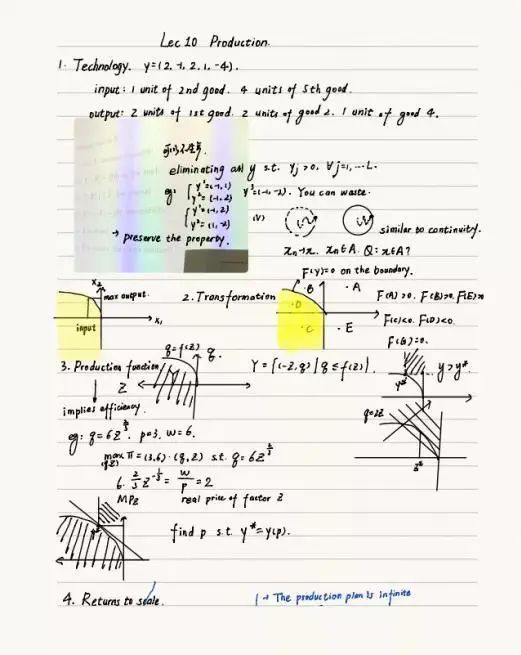 Lec 10 Production.
1. Technology. y=(2,-1,2,1,-4).
input: 1 unit of 2nd good. 4 units of 5th good.
output: 2 units of 1st good. 2 units of good 2. 1 unit of good 4.
eliminating all y s.t. yj>0, ∀j=1,...L.
eg: y¹=(-1,1) y³=(-1,-2). You can waste.
y²=(-1,2)
y¹=(-1,2)
y²=(1,-2)
(V)
similar to continuity.
→ preserve the property.
xn→x. xn∈A. Q: x∈A?
F(y)=0 on the boundary.
x2
max output.
input
x1
2. Transformation
·B
·A
·D
·C
·E
F(A)>0, F(B)>0, F(E)>0
F(C)<0. F(D)<0.
F(G)=0.
3. Production function
q=f(z)
q.
z
Y={(-z,q)|q≤f(z)}.
y>y*.
y*
implies efficiency.
eg: q=6z^⅔. p=3. w=6.
q=2z
max π=(3,6)·(q,z) s.t. q=6z^⅔
(q,z)
6·⅔z^-⅓=w/p=2
z*
MPz
real price of factor z
find p s.t. y*=y(p).
4. Returns to scale.
1→ The production plan is infinite